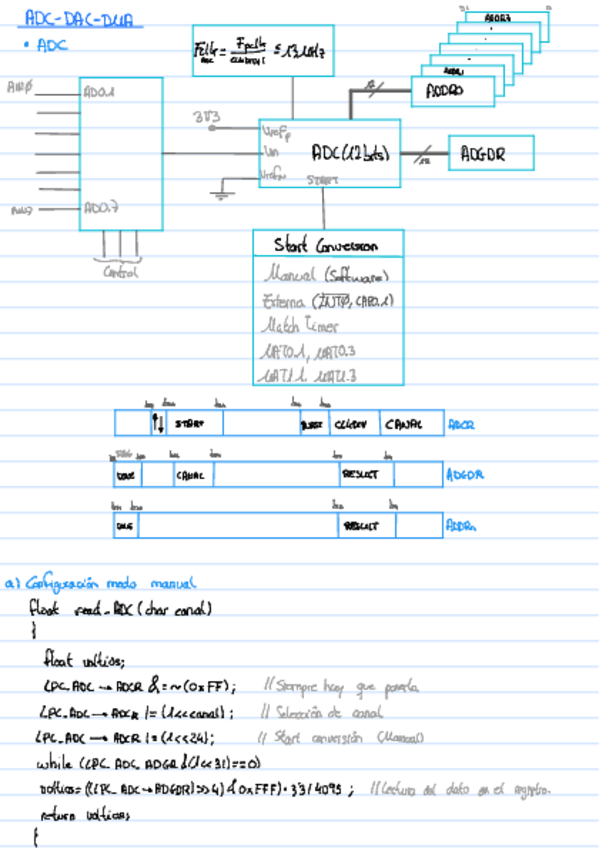 ADC-DAC-DMA
• ADC
Fclk ADC = Fpclk / CLKDIV+1 ≤ 13MHz
ADDR7
ADDR1
ADDR0
AIN0
AD0.1
3V3
Vrefp
Vin
Vrefn
ADC (12 bits)
START
12
ADGDR
AIN7
AD0.7
Control
Start Conversion
Manual (Software)
Externa (INT0, CAP0.1)
Match Timer
MAT0.1, MAT0.3
MAT1.1, MAT1.3
START
BURST
CLKDIV
CANAL
ADCR
DONE
CANAL
RESULT
ADGDR
RESULT
ADDRn
a) Configuración modo manual
float read_ADC (char canal)
{
float voltios;
LPC_ADC → ADCR &= ~(0xFF); // Siempre hay que ponerla
LPC_ADC → ADCR |= (1<<canal); // Selección de canal
LPC_ADC → ADCR |= (1<<24); // Start conversión (Manual)
while (LPC_ADC ADGR &(1<<31)==0)
voltios= ((LPC_ADC→ADGDR)>>4)&0xFFF)*3.3/4095; // Lectura del dato en el registro.
return voltios;
{